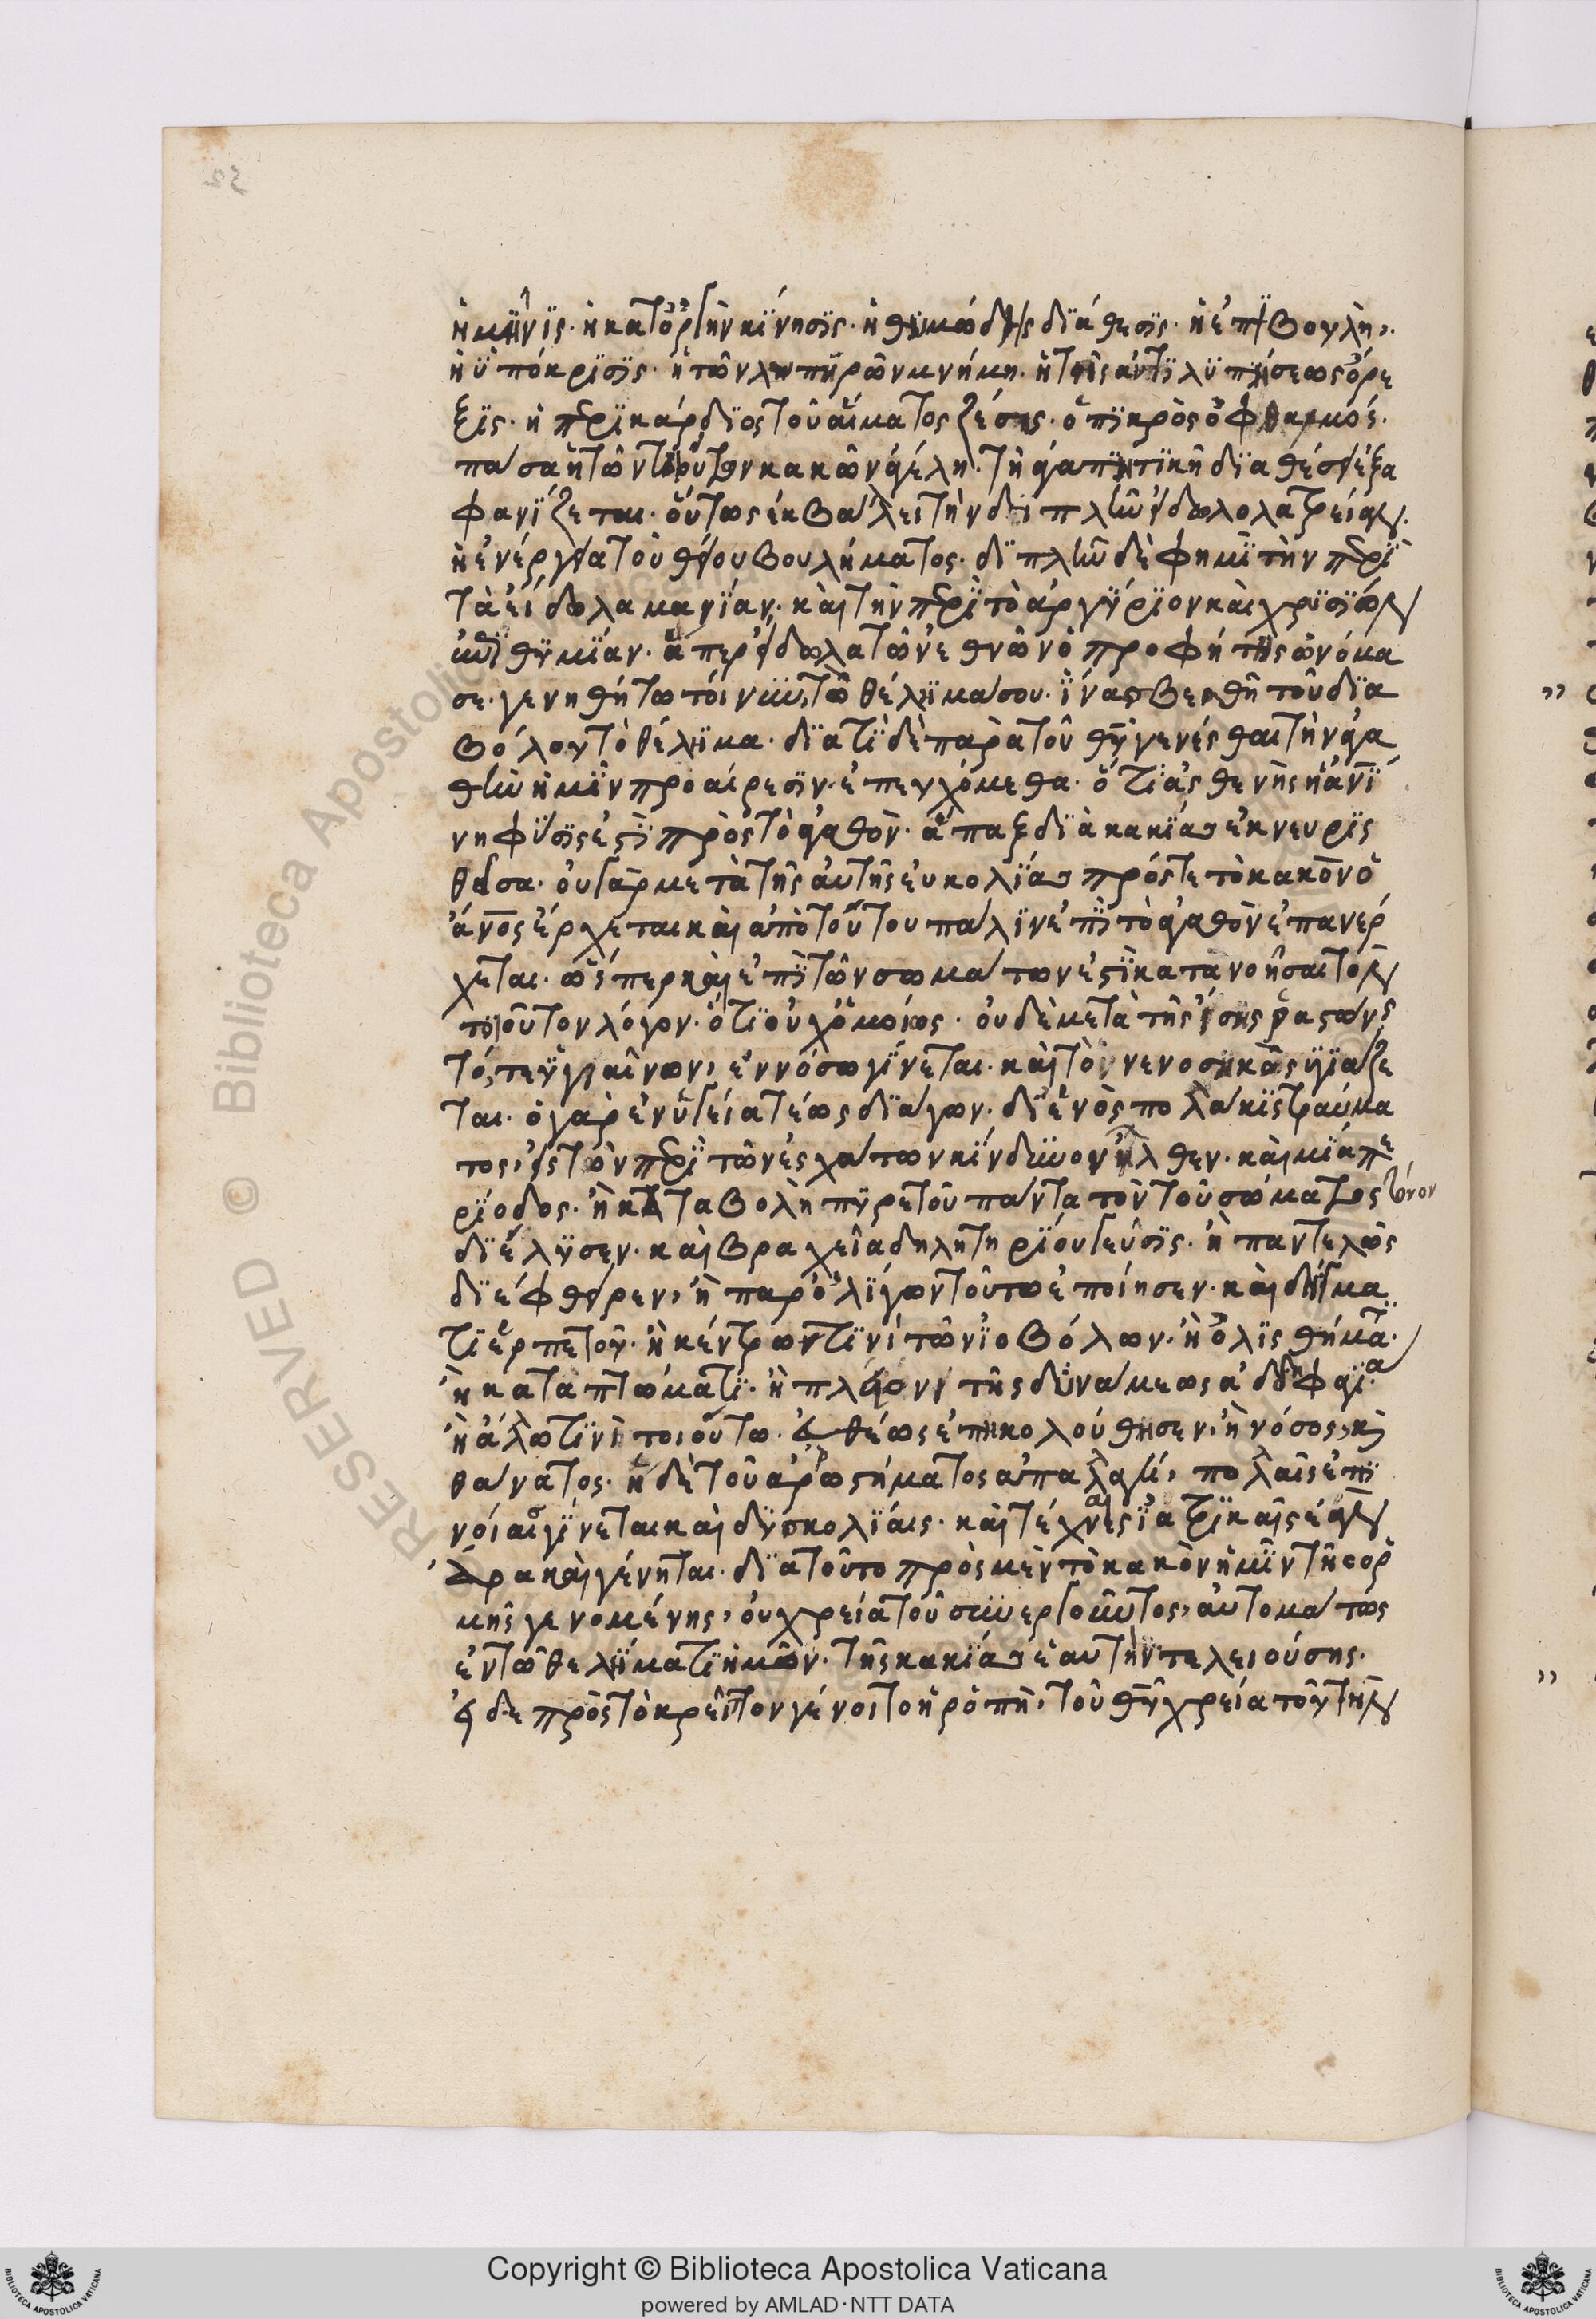 ἡ μῆνϊς· ἡ κατ' ὀργὴν κίνησϊς· ἡ θυμώδης δϊάθεσϊς· ἡ ἐπϊβουλὴ,·
ἡ ϋπόκρϊσϊς· ἡ τῶν λυπηρῶν μνήμη· ἡ τῆς ἀντϊλϋπήσεως ὄρε
ξϊς· ἡ περϊκάρδϊος τοῦ αἵματος ζέσης· ὁ πϊκρὸς ὀφθαλμός·
πᾶσα ἡ τῶν τοιούτων κακῶν ἀγέλη· τῆ ἀγαπητϊκῆ δϊαθέσει ἐξα
φανίζεται· οὕτως ἐκβάλλει τὴν διπλῆν εἰδωλολατρείαν·
ἡ ἐνέργεια τοῦ θείου βουλήματος· δϊπλῆν δὲ φημὶ τὴν περϊ
τὰ εἴδωλα μανϊάν· καὶ τὴν περϊ τὸ ἀργΰρϊον καὶ χρϋσϊον
ἐπϊθϋμΐαν· ἅπερ εἴδωλα τῶν ἐθνῶν ὁ προφήτης ὠνόμα
σε· γενηθήτω τοίνυν τὸ θέλημα σου· ἵνα σβεσθῆ τοῦ δϊα
βόλου τὸ θέλημα· δϊατϊ δὲ παρὰ τοῦ θῡ γενέσθαι τὴν ἀγα
θὴν ἡμῖν προαίρεσϊν· ἐπευχόμεθα· ὅτϊ ἀσθενὴς ἡ ἀνϊ
νη φύσϊς ἐστϊ πρὸς τὸ ἀγαθὸν· ἅπαξ δϊὰ κακίας ἐκνευρϊς
θεῖσα· οὐ γὰρ μετὰ τῆς αὐτῆς εὐκολΐας πρός τε τὸ κακὸν ὁ
ἄν̅ος ἔρχεται καὶ ἀπὸ τούτου πάλϊν ἐπϊ τὸ ἀγαθὸν ἐπανέρ
χεται· ὥσπερ καὶ ἐπϊ τῶν σωμάτων ἐστϊ κατανοῆσαι τὸν
τοιοῦτον λόγον· ὅτϊ οὐχ ὁμοίως· οὐδὲ μετὰ τῆς ἴσης ῥαστώνης
τό, τε ϋγιαῖνων, ἐν νόσω γΐνεται· καὶ τὸ νενοσηκὸς ϋγϊάζε
ται· ὁ γὰρ ἐν ϋγεία τέως δϊάγων· δϊ ἑνὸς πολλάκϊς τραύμα
τος, εἰς τὸν περϊ τῶν ἐσχάτων κΐνδυνον ἦλθεν· καὶ μΐα πε
ρΐοδος· ἢ καταβολὴ πϋρετοῦ πάντα τὸν τοῦ σώματος τόνον
δϊέλϋσεν· καὶ βραχεῖα δηλητηρΐου γεῦσϊς· ἢ παντελῶς
δϊέφθειρεν, ἢ παρ' ὀλΐγων τοῦτω ἐποίησεν· καὶ δήγμα
τϊ ἑρπετοῦ· ἢ κέντρων τϊνὶ τῶν ϊοβόλων· ἢ ὀλϊσθήματϊ·
ἢ καταπτώματϊ· ἢ πλείονι τῆς δυνάμεως ἀδδηφαγΐα
ἢ ἄλλω τϊνὶ τοιούτω· εὐθέως ἐπηκολούθησεν, ἢ νόσος, ἢ
θάνατος· ἡ δὲ τοῦ ἀρρωστήματος ἀπαλλαγὴ, πολλαῖς ἐπϊ
νοίαις γΐνεται καὶ δϋσκολΐαις· καὶ τέχναις ϊατρϊκαῖς ἐὰν
ἄρα καὶ γένηται· δϊατοῦτο πρὸς μὲν τὸ κακὸν ἡμῖν τῆς ὁρ
μῆς γενομένης, οὐ χρεία τοῦ συνεργοῦντος, αὐτομάτως
ἐν τῶ θελήματϊ ἡμῶν· τῆς κακίας ἑαυτὴν τελειούσης·
εἰ δε πρὸς τὸ κρεῖττον γένοιτο ἡ ῥοπὴ, τοῦ θῡ χρεία τοῦ τὴν